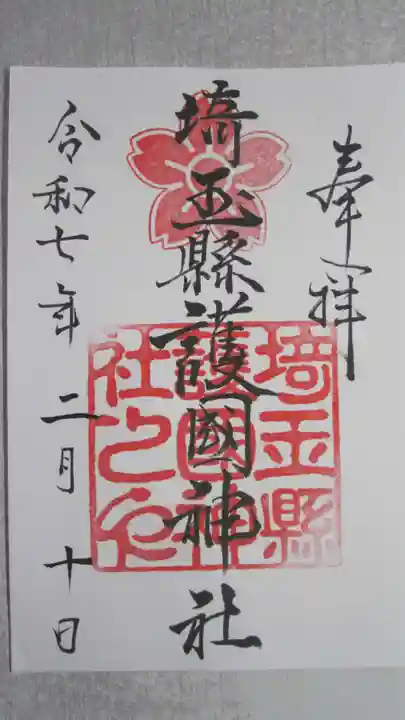 奉拝
埼玉縣護國神社
令和七年二月十日
埼玉縣
護國神
社之印